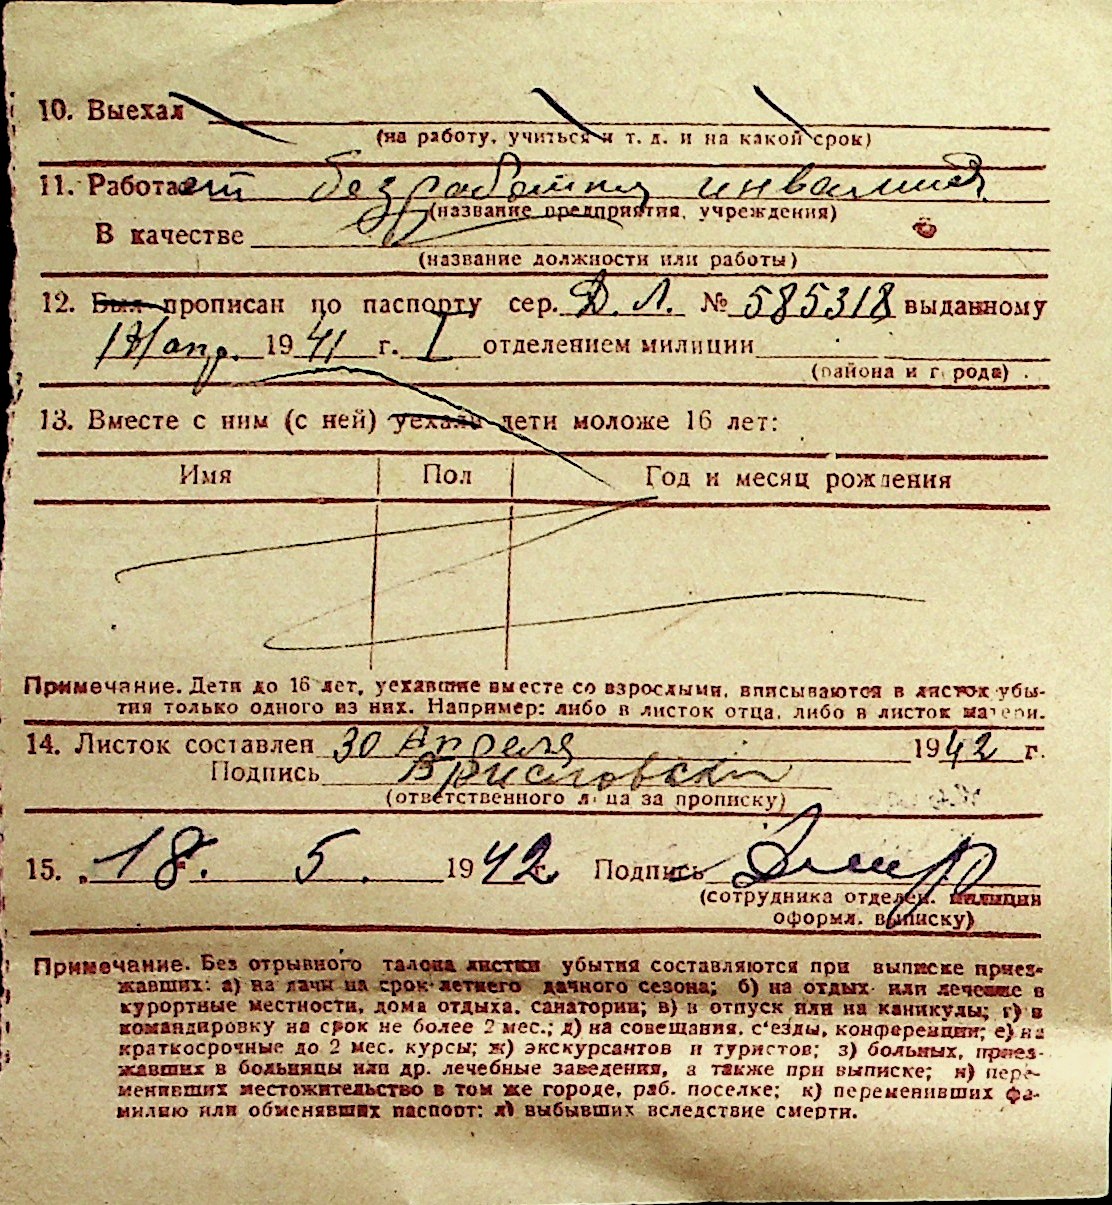 10. Выехал
(на работу, учиться и т. д. и на какой срок)
11. Работает безработный инвалид
(название предприятия, учреждения)
В качестве
(название должности или работы)
12. Был прописан по паспорту сер. Д. Л. № 585318 выданному
17/апр. 1941 г. I отделением милиции
(района и города)
13. Вместе с ним (с ней) уехали дети моложе 16 лет:
Имя Пол Год и месяц рождения
Примечание. Дети до 16 лет, уехавшие вместе со взрослыми, вписываются в листок убы-
тия только одного из них. Например: либо в листок отца, либо в листок матери.
14. Листок составлен 30 Апреля 1942 г.
Подпись
(ответственного лица за прописку)
15. 18. 5. 1942 г. Подпись
(сотрудника отделен. милиции
оформл. выписку)
Примечание. Без отрывного талона листки убытия составляются при выписке приез-
жавших: а) на дачи на срок летнего дачного сезона; б) на отдых или лечение в
курортные местности, дома отдыха, санатории; в) в отпуск или на каникулы; г) в
командировку на срок не более 2 мес.; д) на совещания, с'езды, конференции; е) на
краткосрочные до 2 мес. курсы; ж) экскурсантов и туристов; з) больных, приез-
жавших в больницы или др. лечебные заведения, а также при выписке; и) пере-
менивших местожительство в том же городе, раб. поселке; к) переменивших фа-
милию или обменявших паспорт; л) выбывших вследствие смерти.